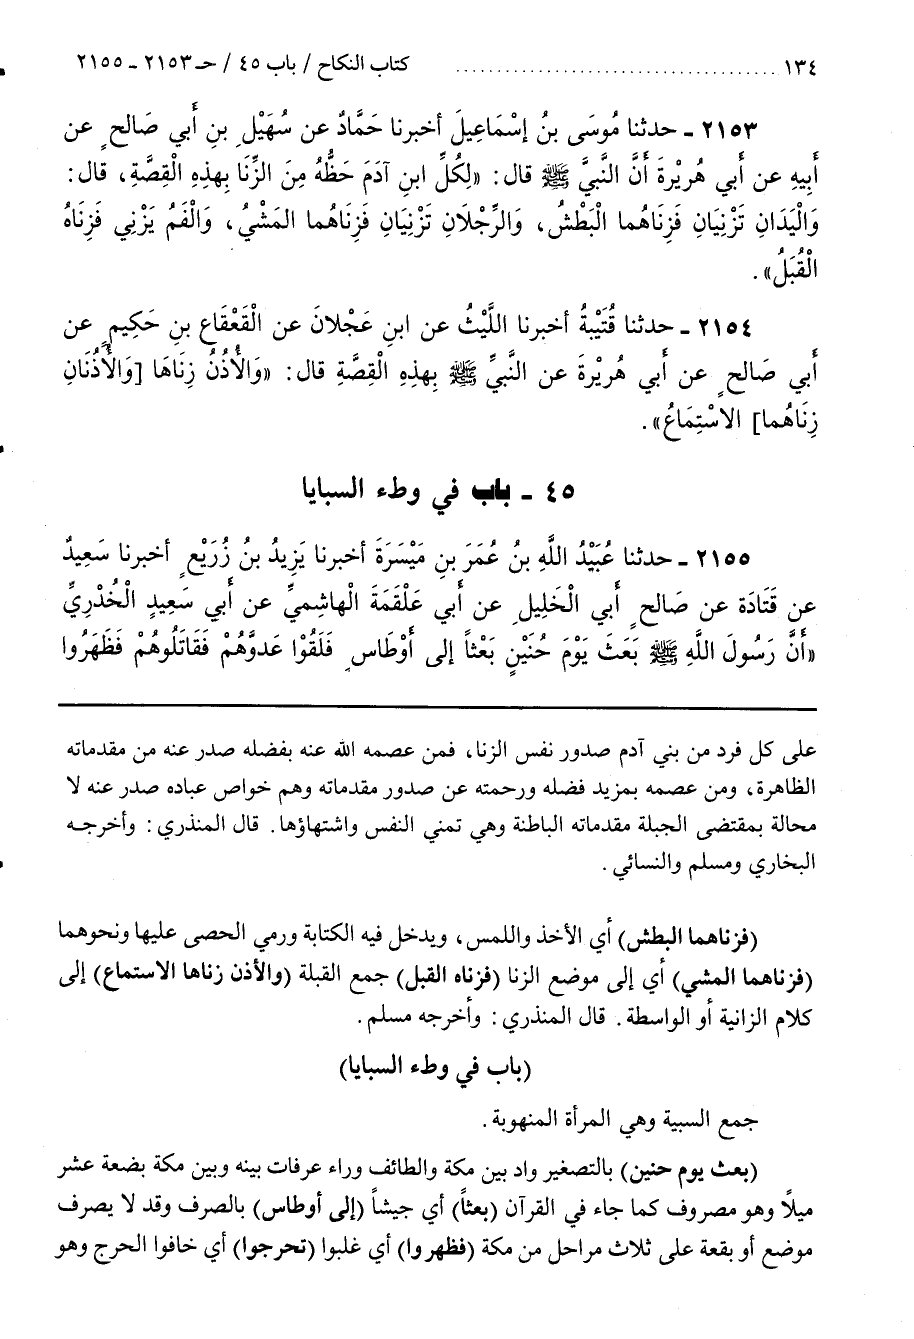 ١٣٤ ........................................ كتاب النكاح / باب ٤٥ / حـ ٢١٥٣ ـ ٢١٥٥
٢١٥٣ ـ حدثنا مُوسَى بنُ إسْمَاعِيلَ أخبرنا حَمَّادٌ عن سُهَيْلِ بنِ أَبي صَالحٍ عن
أَبِيهِ عن أَبي هُرِيْرةَ أَنَّ النَّبيَّ ﷺ قال: «لِكُلِّ ابنِ آدَمَ حَظُّهُ مِنَ الزِّنَا بِهذِهِ الْقِصَّةِ، قال:
وَالْيَدَانِ تَزْنِيَانِ فَزِنَاهُما الْبَطْشُ، وَالرِّجْلَانِ تَزْنِيَانِ فَزِنَاهُما المَشْيُ، وَالْفَمُ يَزْنِي فَزِنَاهُ
الْقُبَلُ».
٢١٥٤ ـ حدثنا قُتَيْبةُ أخبرنا اللَّيْثُ عن ابنِ عَجْلانَ عن الْقَعْقَاعِ بنِ حَكِيمٍ عن
أَبي صَالحٍ عن أَبي هُرِيْرةَ عن النَّبيِّ ﷺ بِهذِهِ الْقِصَّةِ قال: «وَالْأُذُنُ زِنَاهَا [وَالْأُذُنَانِ
زِنَاهُما] الاسْتِمَاعُ».
٤٥ ـ باب في وطء السبايا
٢١٥٥ ـ حدثنا عُبَيْدُ اللَّهِ بنُ عُمَرَ بنِ مَيْسَرَةَ أخبرنا يَزِيدُ بنُ زُرَيْعٍ أخبرنا سَعِيدٌ
عن قَتَادَة عن صَالحٍ أَبي الْخَلِيلِ عن أَبي عَلْقَمَةَ الْهاشِمِيِّ عن أَبي سَعِيدٍ الْخُدْرِيِّ
«أَنَّ رَسُولَ اللَّهِ ﷺ بَعَثَ يَوْمَ حُنَيْنٍ بَعْثاً إلى أَوْطَاسٍ فَلَقُوْا عَدوَّهُمْ فَقَاتَلُوهُمْ فَظَهَرُوا
على كل فرد من بني آدم صدور نفس الزنا، فمن عصمه الله عنه بفضله صدر عنه من مقدماته
الظاهرة، ومن عصمه بمزيد فضله ورحمته عن صدور مقدماته وهم خواص عباده صدر عنه لا
محالة بمقتضى الجبلة مقدماته الباطنة وهي تمني النفس واشتهاؤها. قال المنذري: وأخرجـه
البخاري ومسلم والنسائي.
(فزناهما البطش) أي الأخذ واللمس، ويدخل فيه الكتابة ورمي الحصى عليها ونحوهما
(فزناهما المشي) أي إلى موضع الزنا (فزناه القبل) جمع القبلة (والأذن زناها الاستماع) إلى
كلام الزانية أو الواسطة. قال المنذري: وأخرجه مسلم.
(باب في وطء السبايا)
جمع السبية وهي المرأة المنهوبة.
(بعث يوم حنين) بالتصغير واد بين مكة والطائف وراء عرفات بينه وبين مكة بضعة عشر
ميلاً وهو مصروف كما جاء في القرآن (بعثاً) أي جيشاً (إلى أوطاس) بالصرف وقد لا يصرف
موضع أو بقعة على ثلاث مراحل من مكة (فظهروا) أي غلبوا (تحرجوا) أي خافوا الحرج وهو